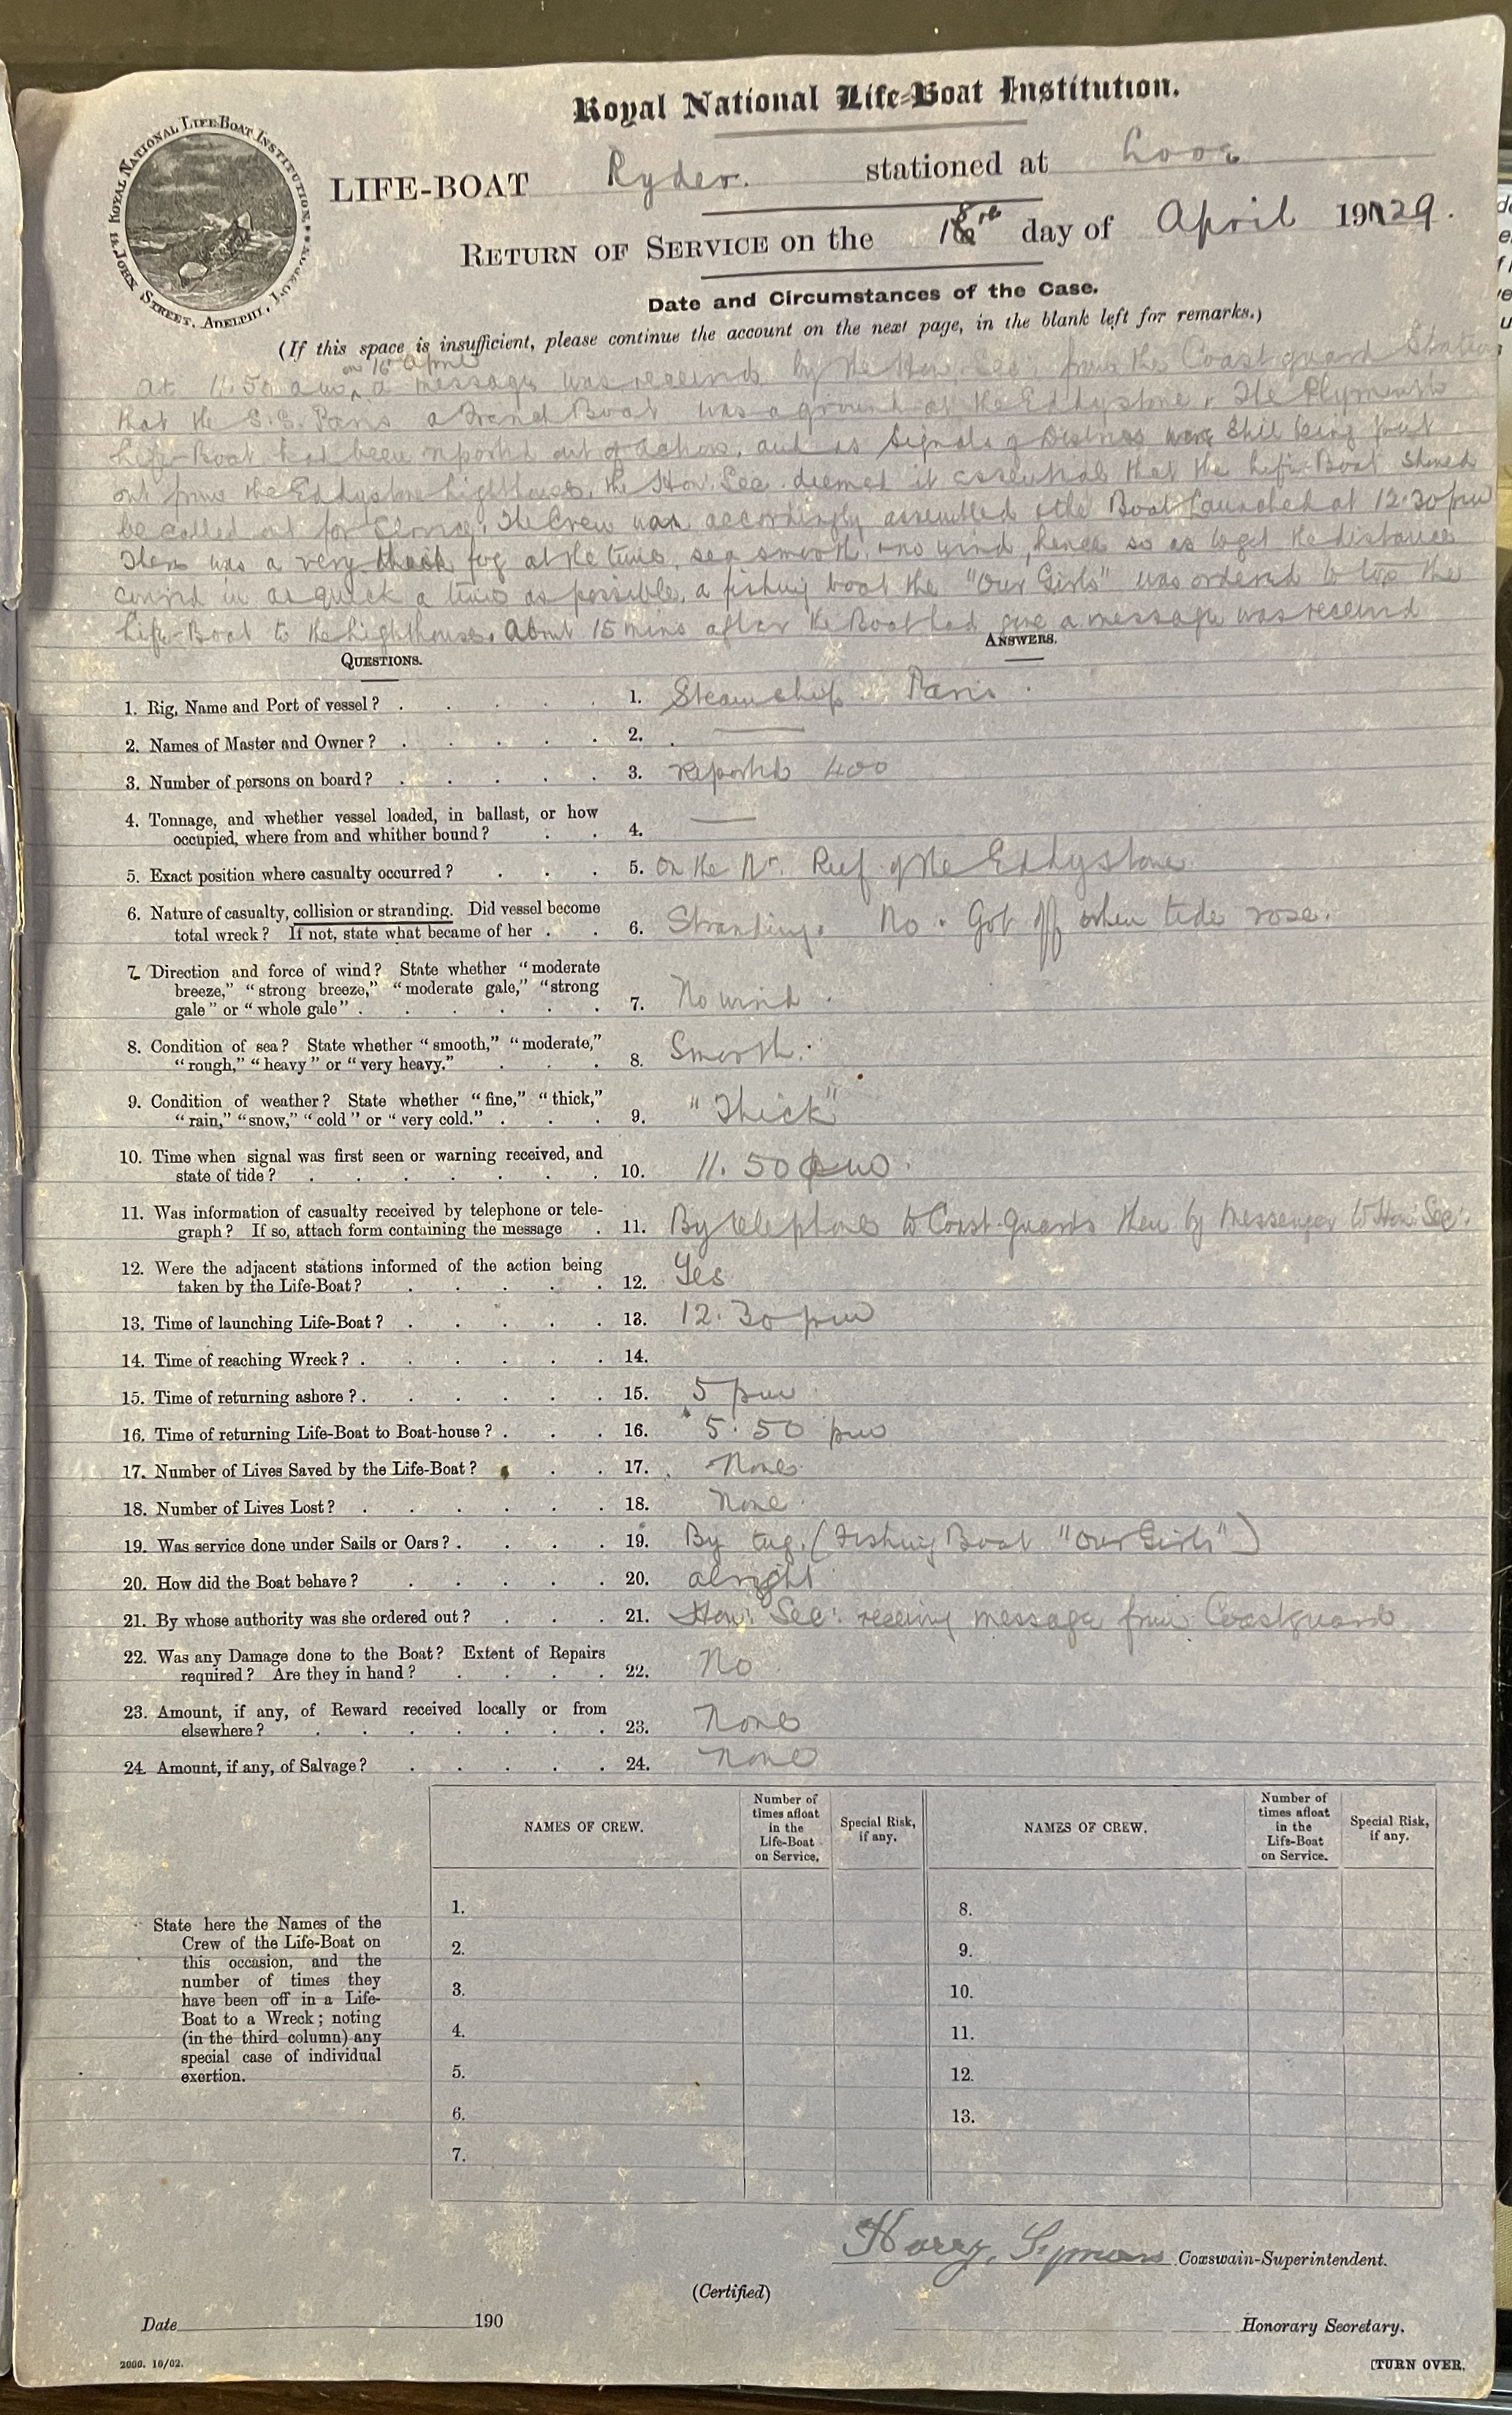 Royal National Life-Boat Institution.
ROYAL NATIONAL LIFE-BOAT INSTITUTION, 14, JOHN STREET, ADELPHI, LONDON
LIFE-BOAT Ryder. stationed at Looe
RETURN OF SERVICE on the 18th day of April 1929.
Date and Circumstances of the Case.
(If this space is insufficient, please continue the account on the next page, in the blank left for remarks.)
on 16 April
at 11.50 am, a message was received by the Hon. Sec. from the Coast guard Station
that the S.S. Paris a French Boat was aground at the Eddystone. The Plymouth
Life-Boat had been reported out of action, and as Signals of Distress were still being put
out from the Eddystone Lighthouse, the Hon. Sec. deemed it essential that the Life-Boat should
be called out for Service. The Crew was accordingly assembled & the Boat launched at 12.30 pm
There was a very thick fog at the time, sea smooth & no wind, hence so as to get the distance
cover'd in as quick a time as possible, a fishing boat the "Our Girls" was ordered to tow the
Life-Boat to the Lighthouse. About 15 mins after the Boat had gone a message was received
QUESTIONS. ANSWERS.
1. Rig, Name and Port of vessel? 1. Steamship Paris.
2. Names of Master and Owner? 2. —
3. Number of persons on board? 3. reported 400
4. Tonnage, and whether vessel loaded, in ballast, or how
occupied, where from and whither bound? 4. —
5. Exact position where casualty occurred? 5. On the Nr. Reef of the Eddystone
6. Nature of casualty, collision or stranding. Did vessel become
total wreck? If not, state what became of her 6. Stranding. No. Got off when tide rose.
7. Direction and force of wind? State whether "moderate
breeze," "strong breeze," "moderate gale," "strong
gale" or "whole gale" 7. No wind.
8. Condition of sea? State whether "smooth," "moderate,"
"rough," "heavy" or "very heavy." 8. Smooth.
9. Condition of weather? State whether "fine," "thick,"
"rain," "snow," "cold" or "very cold." 9. "Thick"
10. Time when signal was first seen or warning received, and
state of tide? 10. 11.50
11. Was information of casualty received by telephone or tele-
graph? If so, attach form containing the message 11. By telephone to Coast-Guards then by messenger to Hon: Sec:
12. Were the adjacent stations informed of the action being
taken by the Life-Boat? 12. Yes
13. Time of launching Life-Boat? 13. 12.30 pm
14. Time of reaching Wreck? 14.
15. Time of returning ashore? 15. 5 pm
16. Time of returning Life-Boat to Boat-house? 16. 5.50 pm
17. Number of Lives Saved by the Life-Boat? 17. None
18. Number of Lives Lost? 18. None
19. Was service done under Sails or Oars? 19. By tug. (Fishing Boat "Our Girls")
20. How did the Boat behave? 20. alright
21. By whose authority was she ordered out? 21. Hon: Sec: receiving message from Coastguard
22. Was any Damage done to the Boat? Extent of Repairs
required? Are they in hand? 22. No
23. Amount, if any, of Reward received locally or from
elsewhere? 23. None
24. Amount, if any, of Salvage? 24. None
NAMES OF CREW. Number of times afloat in the Life-Boat on Service. Special Risk, if any. NAMES OF CREW. Number of times afloat in the Life-Boat on Service. Special Risk, if any.
State here the Names of the
Crew of the Life-Boat on
this occasion, and the
number of times they
have been off in a Life-
Boat to a Wreck; noting
(in the third column) any
special case of individual
exertion.
1. 8.
2. 9.
3. 10.
4. 11.
5. 12.
6. 13.
7.
Harry Symons Coxswain-Superintendent.
(Certified)
Date 190 Honorary Secretary.
2000. 10/02. [TURN OVER.